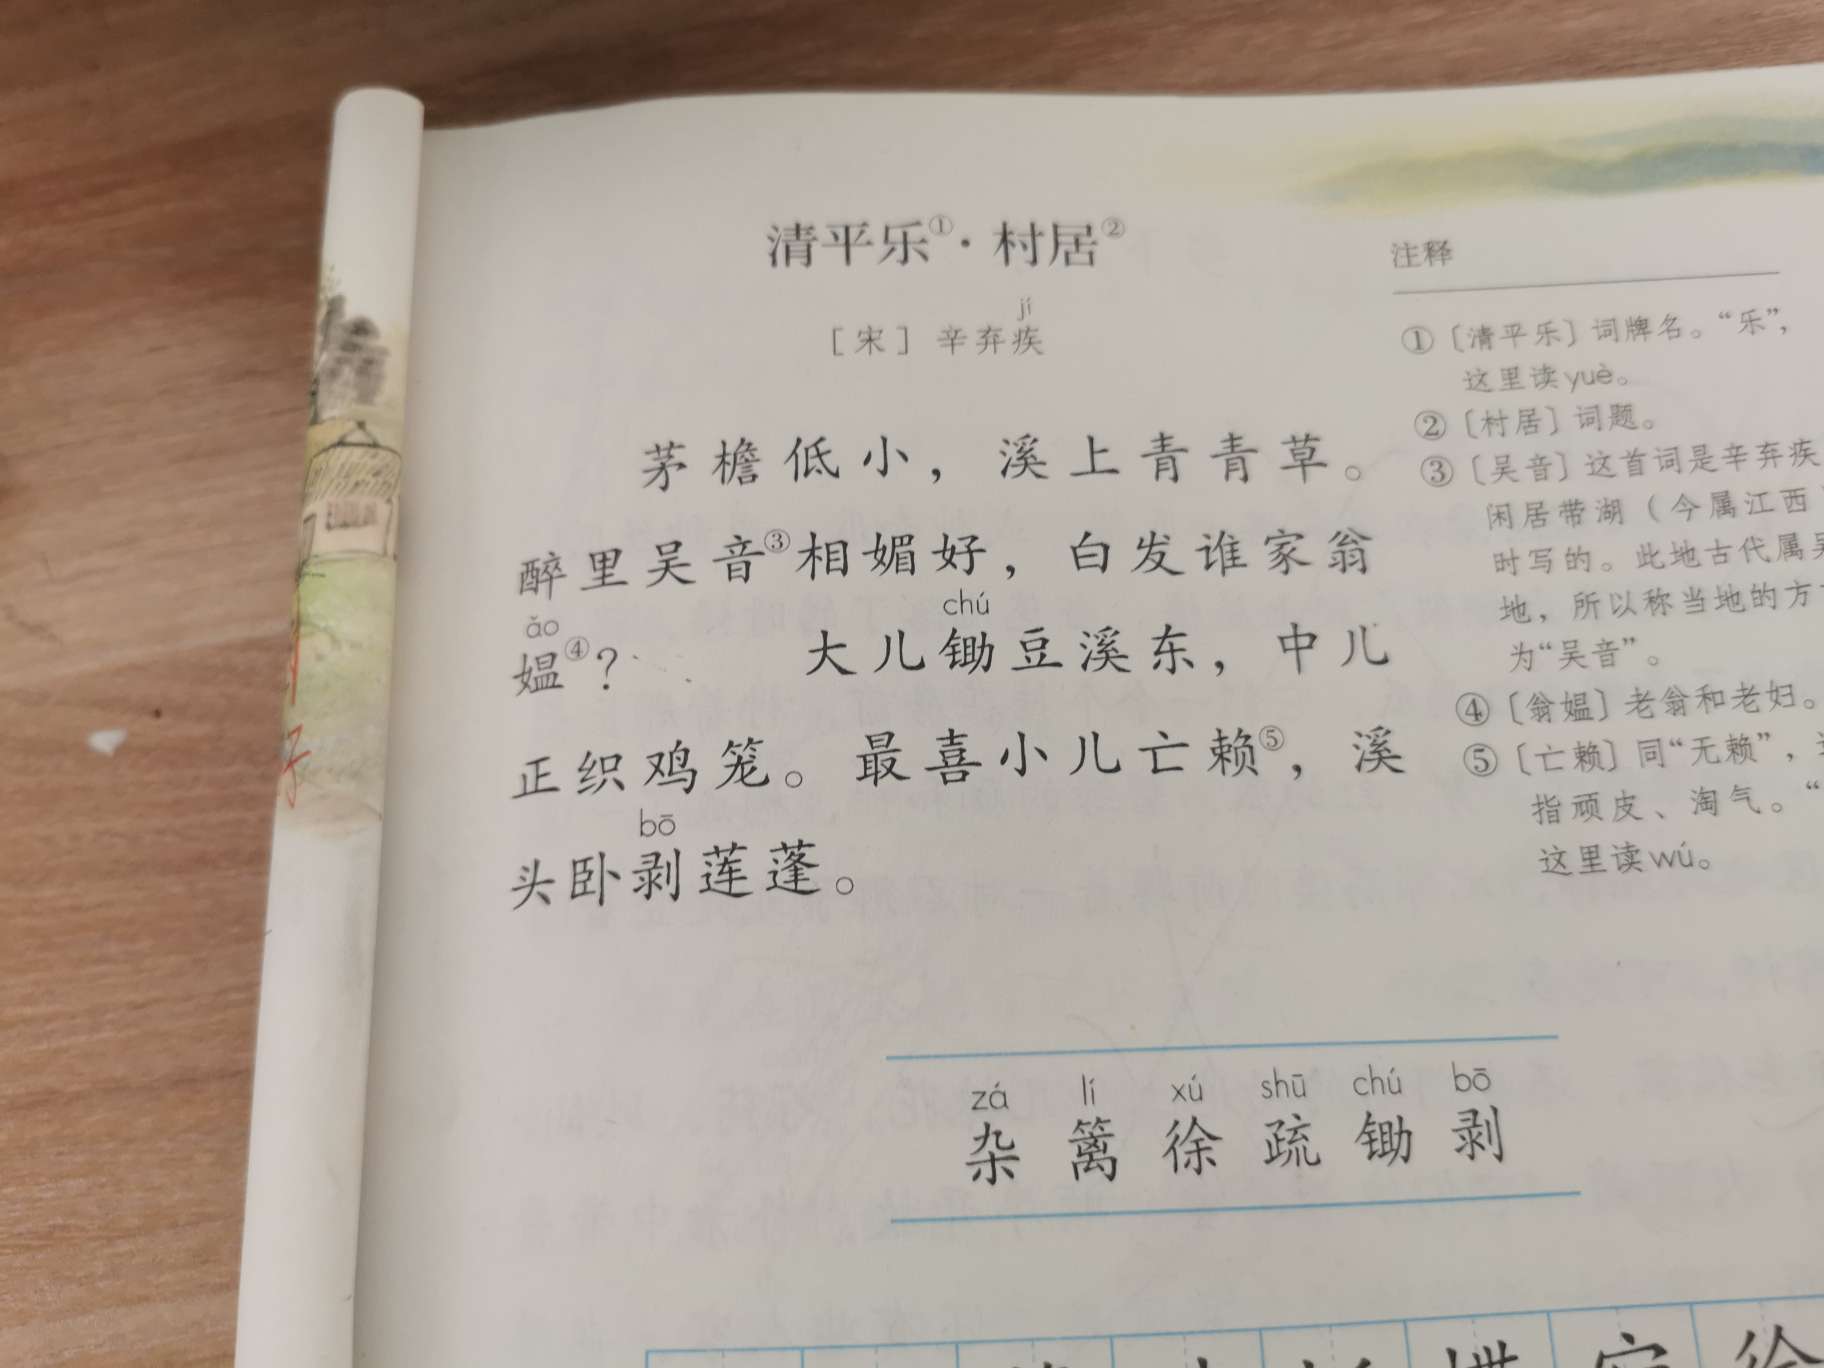 清平乐①·村居②
jí
［宋］辛弃疾
茅檐低小，溪上青青草。
醉里吴音③相媚好，白发谁家翁
ǎo chú
媪④？ 大儿锄豆溪东，中儿
正织鸡笼。最喜小儿亡赖⑤，溪
bō
头卧剥莲蓬。
注释
①〔清平乐〕词牌名。“乐”，
这里读yuè。
②〔村居〕词题。
③〔吴音〕这首词是辛弃疾
闲居带湖（今属江西
时写的。此地古代属吴
地，所以称当地的方
为“吴音”。
④〔翁媪〕老翁和老妇。
⑤〔亡赖〕同“无赖”，
指顽皮、淘气。“
这里读wú。
zá lí xú shū chú bō
杂 篱 徐 疏 锄 剥